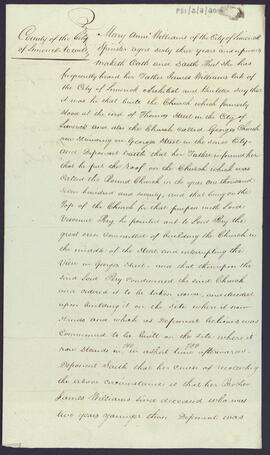 PSI/2/2/20
County of the City
of Limerick to wit
Mary Anne Williams of the City of Limerick
Spinster aged sixty three years and upwards
maketh Oath and Saith that she has
frequently heard her Father James Williams late of
the City of Limerick Architect and Builder say that
it was he that built the Church which formerly
stood at the end of Thomas Street in the City of
Limerick and also the Church called Georges Church
now standing in Georges Street in the said City
and Deponent Saith that her Father informed her
that he put the Roof on the Church which was
called the Round Church in the year one thousand
seven hundred and seventy, and that being on the
Top of the Church for that purpose with Lord
Viscount Pery he pointed out to Lord Pery the
great error committed of building the Church in
the middle of the Street and interrupting the
View in Georges Street and that thereupon the
said Lord Pery condemned the said Church
and ordered it to be taken down, and decided
upon building it on the site where it now
stands and which as Deponent believes was
commenced to be built on the site where it
now stands in a short time afterwards
Deponent Saith that her cause of recollecting
the above circumstance is that her Brother
James Williams since deceased who was
two years younger than Deponent was